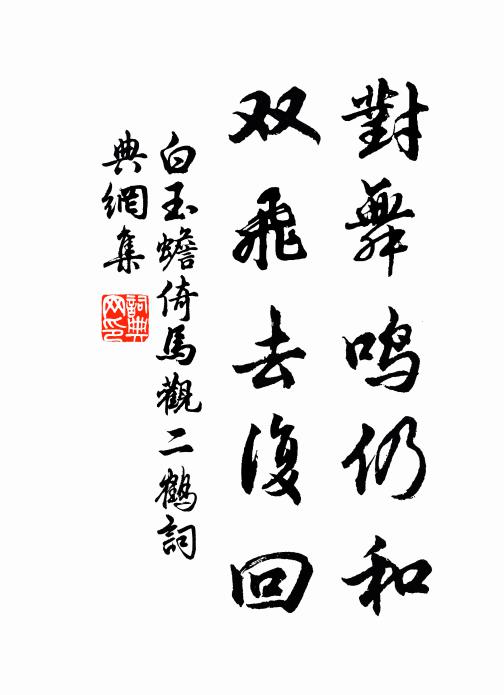 對舞鳴仍和
双飛去復回
白玉蟾倚馬觀二鶴詞
典網集
詞典
网印